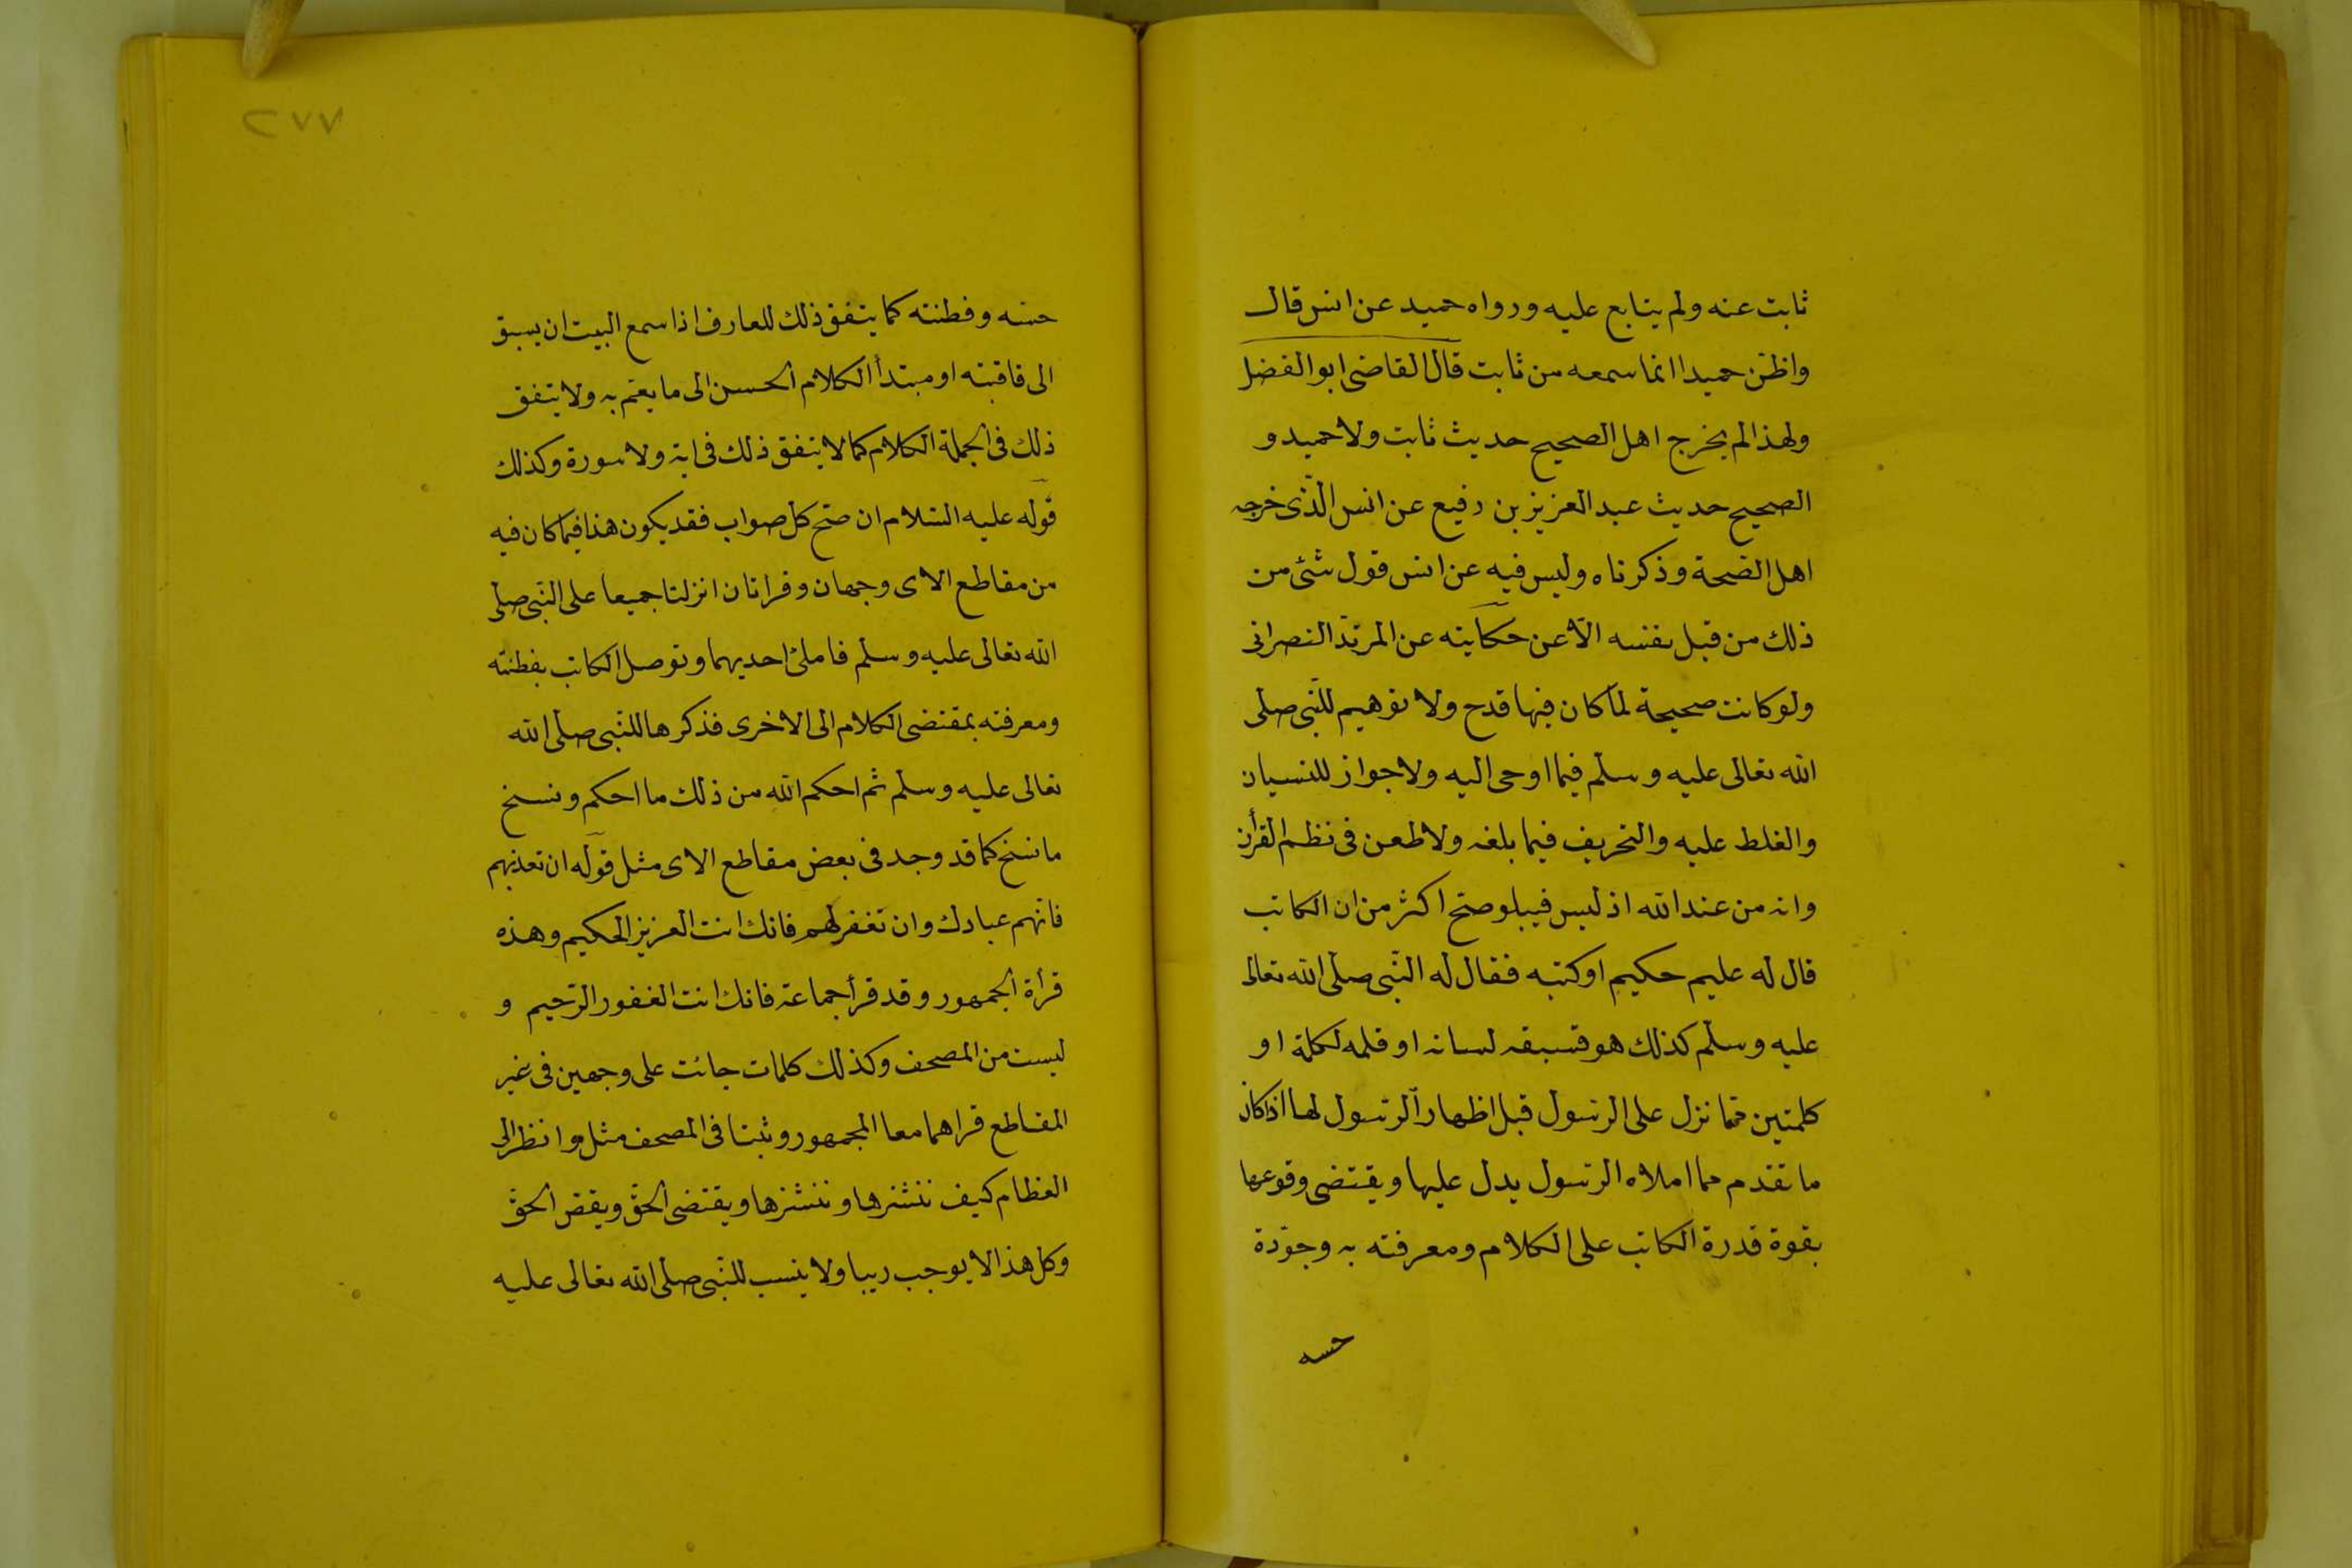 ثابت عنه ولم يتابع عليه ورواه حميد عن انس قال
واظن حميدا انما سمعه من ثابت قال القاضى ابو الفضل
ولهذا لم يخرج اهل الصحيح حديث ثابت ولا حميد و
الصحيح حديث عبد العزيز بن رفيع عن انس الّذى خرجه
اهل الصّحة وذكرناه وليس فيه عن انس قول شئ من
ذلك من قبل نفسه الّا عن حكايته عن المرتدّ النصرانى
ولو كانت صحيحة لما كان فيها قدح ولا توهيم للنّبى صلى
الله تعالى عليه وسلّم فيما اوحى اليه ولا جواز للنسيان
والغلط عليه والتحريف فيما بلغه ولا طعن فى نظم القرأن
وانه من عند الله اذ ليس فيه لو صحّ اكثر من ان الكاتب
قال له عليم حكيم او كتبه فقال له النّبى صلّى الله تعالى
عليه وسلّم كذلك هو فسبقه لسانه او قلمه لكلمة او
كلمتين ممّا نزل على الرّسول قبل اظهار الرّسول لها اذ كان
ما تقدم مما املاه الرّسول يدل عليها ويقتضى وقوعها
بقوة قدرة الكاتب على الكلام ومعرفته به وجوّدة
حسه
٢٧٧
حسّه وفطنته كما يتفق ذلك للعارف اذا سمع البيت ان يسبق
الى قافيته او مبتدأ الكلام الحسن الى ما يتم به ولا يتفق
ذلك فى الجملة الكلام كما لا يتفق ذلك فى اية ولا سورة وكذلك
قوله عليه السّلام ان صحّ كل صواب فقد يكون هذا فيما كان فيه
من مقاطع الاى وجهان وقرائان انزلتا جميعا على النّبى صلى
الله تعالى عليه وسلّم فاملئ احديهما وتوصل الكاتب بفطنته
ومعرفته بمقتضى الكلام الى الاخرى فذكرها للنّبى صلّى الله
تعالى عليه وسلّم ثم احكم الله من ذلك ما احكم ونسخ
ما نسخ كما قد وجد فى بعض مقاطع الاى مثل قوله ان تعذبهم
فانّهم عبادك وان تغفر لهم فانك انت العزيز الحكيم وهذه
قرأة الجمهور وقد قرأ جماعة فانك انت الغفور الرّحيم و
ليست من المصحف وكذلك كلمات جائت على وجهين فى غير
المقاطع قراهما معا الجمهور وثبتا فى المصحف مثل وانظر الى
العظام كيف ننشرها وننشزها ويقتضى الحقّ ويقصّ الحقّ
وكل هذا لا يوجب ريبا ولا ينسب للنّبى صلّى الله تعالى عليه